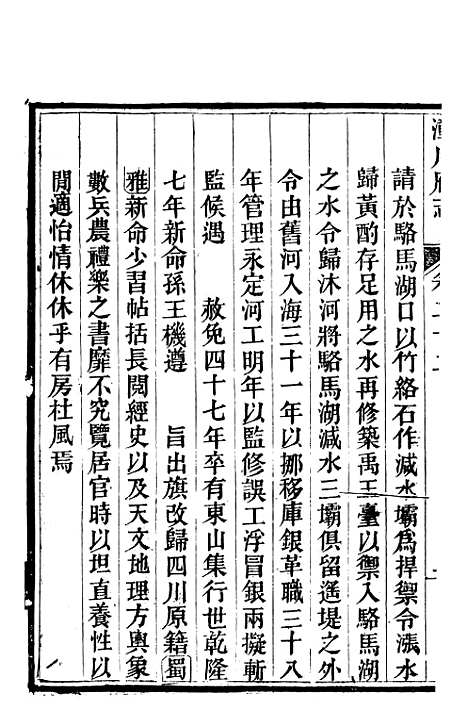 請於駱馬湖口以竹絡石作減水壩爲捍禦令漲水
歸黃酌存足用之水再修築禹王臺以禦入駱馬湖
之水令歸沐河將駱馬湖減水三壩俱留遙堤之外
令由舊河入海三十一年以挪移庫銀革職三十八
年管理永定河工明年以監修誤工浮冒銀兩擬斬
監候遇 赦免四十七年卒有東山集行世乾隆
七年新命孫王機遵 旨出旗改歸四川原籍蜀
雅新命少習帖括長閱經史以及天文地理方輿象
數兵農禮樂之書靡不究覽居官時以坦直養性以
閒適怡情休休乎有房杜風焉